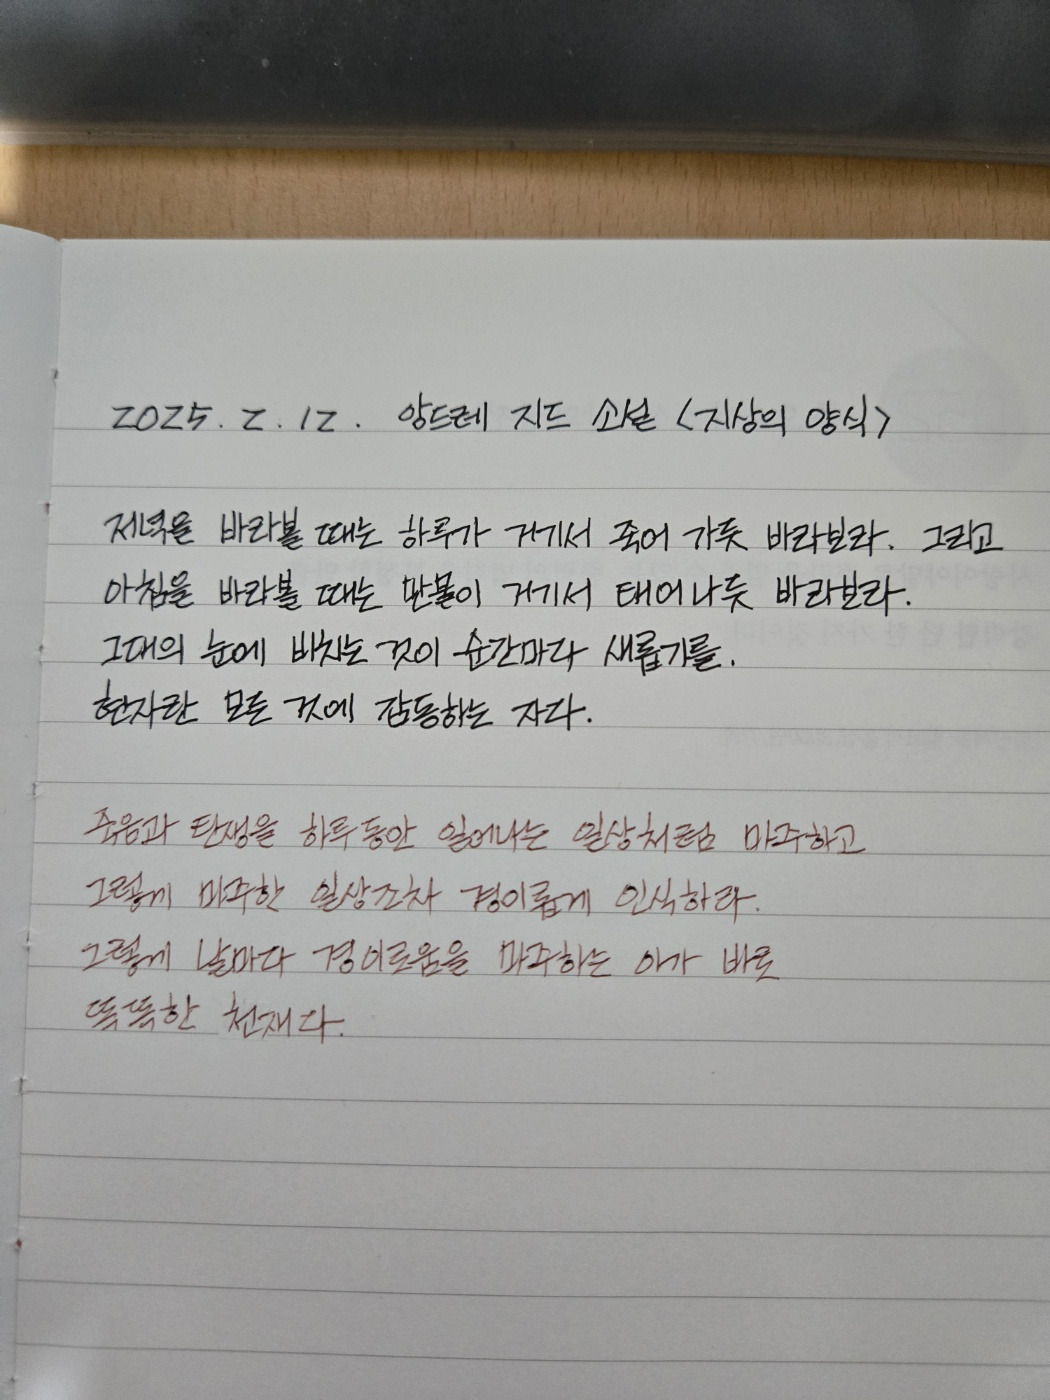 2025. 2. 12. 앙드레 지드 소설 <지상의 양식>
저녁을 바라볼 때는 하루가 거기서 죽어 가듯 바라보라. 그리고
아침을 바라볼 때는 만물이 거기서 태어나듯 바라보라.
그대의 눈에 비치는 것이 순간마다 새롭기를.
현자란 모든 것에 감동하는 자다.
죽음과 탄생을 하루동안 일어나는 일상처럼 마주하고
그렇게 마주한 일상조차 경이롭게 인식하라.
그렇게 날마다 경이로움을 마주하는 이가 바로
똑똑한 천재다.